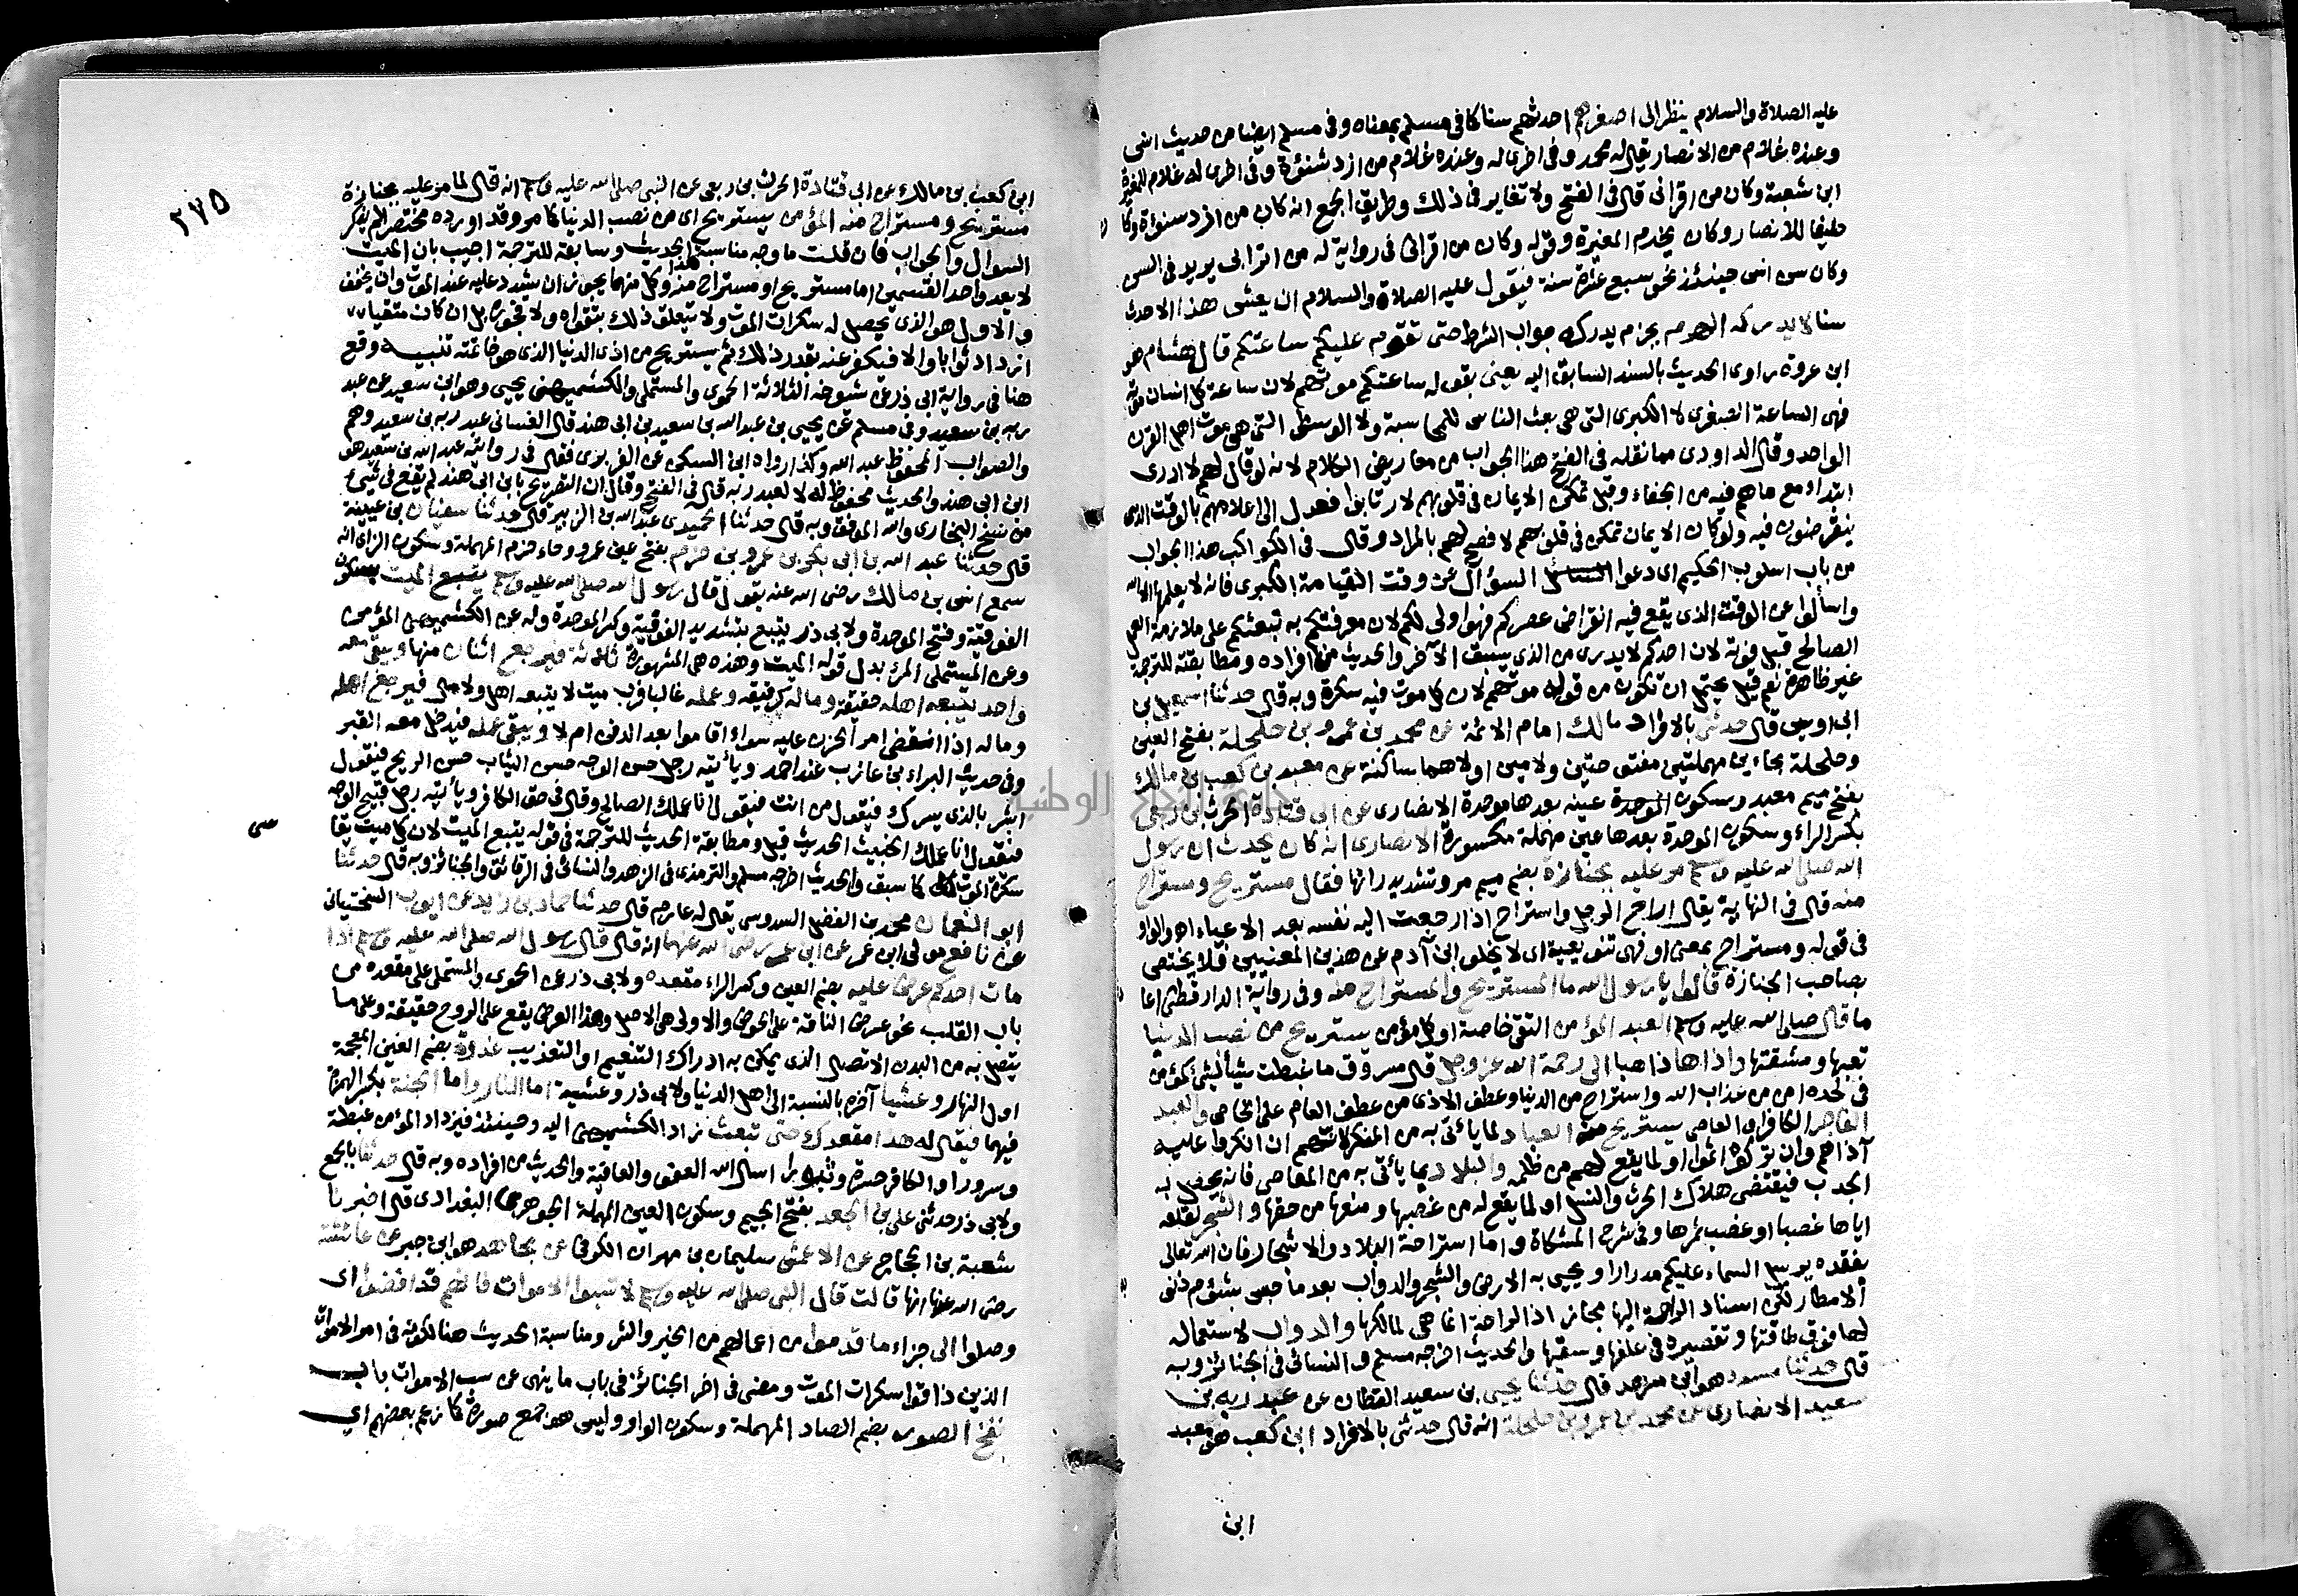 عليه الصلاة والسلام ينظر الى اصغرهم احدثهم سنا كما فى مسلم بمعناه وفى مسلم ايضا من حديث انس
وعنده غلام من الانصار يقال له محمد وفى اخرى له وعنده غلام من ازد شنؤة وفى اخرى له غلام للمغيرة
ابن شعبة وكان من اقرانى قال فى الفتح ولا تغاير فى ذلك وطريق الجمع انه كان من ازد شنوءة وكا
حليفا للانصار وكان يخدم المغيرة وقوله وكان من اقرانى فى رواية له من اترابى يريد فى السن
وكان سن انس حينئذ نحو سبع عشرة سنة فيقول عليه الصلاة والسلام ان يعش هذا الاحدث
سنا لا يدركه الهرم بجزم يدركه جواب الشرط حتى تقوم عليكم ساعتكم قال هشام هو
ابن عروة راوى الحديث بالسند السابق اليه يعنى بقوله ساعتكم موتهم لان ساعة كل انسان موته
فهى الساعة الصغرى لا الكبرى التى هى بعث الناس للمحاسبة ولا الوسطى التى هى موت اهل القرن
الواحد وقال الداودى مما نقله فى الفتح هذا الجواب من معاريض الكلام لانه لو قال لهم لا ادرى
ابتداء مع ما هم فيه من الجفاء وقبل تمكن الايمان فى قلوبهم لارتابوا فعدل الى اعلامهم بالوقت الذى
ينقرضون فيه ولو كان الايمان تمكن فى قلوبهم لافصح لهم بالمراد وقال فى الكواكب هذا الجواب
من باب اسلوب الحكيم اى دعوا السؤال عن وقت القيامة الكبرى فانه لا يعلمها الا الله
واسألوا عن الوقت الذى يقع فيه انقراض عصركم فهو اولى لكم لان معرفتكم به تبعثكم على ملازمة العمل
الصالح قبل فوته لان احدكم لا يدرى من الذى يسبق الآخر والحديث من افراده ومطابقته للترجمة
غير ظاهرة نعم قيل يحتمل ان تكون من قوله موتهم لان كل موت فيه سكرة وبه قال حدثنا اسمعيل بن
ابى اويس قال حدثنى بالافراد مالك امام الائمة عن محمد بن عمرو بن حلحلة بفتح العين
وحلحلة بحاءين مهملتين مفتوحتين ولامين اولاهما ساكنة عن معبد بن كعب بن مالك
بفتح ميم معبد وسكون الموحدة عينه بعدها موحدة الانصارى عن ابى قتادة الحرث بن ربعى
بكسر الراء وسكون الموحدة بعدها عين مهملة مكسورة الانصارى انه كان يحدث ان رسول
الله صلى الله عليه وسلم مر عليه بجنازة بضم ميم مر وتشديد رائها فقال مستريح ومستراح
منه قال فى النهاية يقال اراح الرجل واستراح اذا رجعت اليه نفسه بعد الاعياء اه والواو
فى قوله ومستراح بمعنى او فهى تنويعية اى لا يخلو ابن آدم عن هذين المعنيين فلا يختص
بصاحب الجنازة قالوا يا رسول الله ما المستريح والمستراح منه وفى رواية الدارقطنى اعا
ما قال صلى الله عليه وسلم العبد المؤمن التقى خاصة او كل مؤمن يستريح من نصب الدنيا
تعبها ومشقتها واذاها ذاهبا الى رحمة الله عز وجل قال مسروق ما غبطت شيأ لشئ كمؤمن
فى لحده امن من عذاب الله واستراح من الدنيا وعطف الاذى من عطف العام على الخاص والعبد
الفاجر الكافر او العاصى يستريح منه العباد لما يأتى به من المنكر لانهم ان انكروا عليه
آذاهم وان تركوه اثموا او لما يقع لهم من ظلمه والبلاد بما يأتى به من المعاصى فانه يحصل به
الجدب فيقتضى هلاك الحرث والنسل او لما يقع له من غصبها ومنعها من حقها والشجر لقلعه
اياها غصبا او غصب ثمرها وفى شرح المشكاة واما استراحة البلاد والاشجار فان الله تعالى
بفقده يرسل السماء عليكم مدرارا ويحيى به الارض والشجر والدواب بعد ما حبس بشؤم ذنوبه
الامطار لكن اسناد الراحة اليها مجاز اذ الراحة انما هى لمالكها والدواب لاستعماله
لها فوق طاقتها وتقصيره فى علفها وسقيها والحديث اخرجه مسلم والنسائى فى الجنائز وبه
قال حدثنا مسدد هو ابن مسرهد قال حدثنا يحيى بن سعيد القطان عن عبد ربه بن
سعيد الانصارى عن محمد بن عمرو بن حلحلة انه قال حدثنى بالافراد ابن كعب هو معبد
ابن
٢٧٥
ابن كعب بن مالك عن ابى قتادة الحرث بن ربعى عن النبى صلى الله عليه وسلم انه قال لما مر عليه بجنازة
مستريح ومستراح منه المؤمن يستريح اى من نصب الدنيا كما مر وقد اورده مختصرا لم يذكر
السوال والجواب فان قلت ما وجه مناسبة هذا الحديث وسابقه للترجمة اجيب بان الميت
لا يعدو احد القسمين اما مستريح او مستراح منه وكل منهما يجوز ان يشدد عليه عند الموت وان يخفف
والاول هو الذى يحصل له سكرات الموت ولا يتعلق ذلك بتقواه ولا فجوره بل ان كان متقيا
ازداد ثوابا والا فيكفر عنه بقدر ذلك ثم يستريح من اذى الدنيا الذى هو خاتمته تنبيه وقع
هنا فى رواية ابى ذر عن شيوخه الثلاثة الحموى والمستملى والكشميهنى يحيى وهو ابن سعيد عن عبد
ربه بن سعيد وفى مسلم عن يحيى بن عبد الله بن سعيد بن ابى هند قال الغسانى عبد ربه بن سعيد وهم
والصواب المحفوظ عبد الله وكذا رواه ابن السكن عن الفربرى فقال فى روايته عبد الله بن سعيد هو
ابن ابى هند والحديث محفوظ له لا لعبد ربه قال فى الفتح وقال ان التصريح بابن ابى هند لم يقع فى شئ
من نسخ البخارى والله الموفق وبه قال حدثنا الحميدى عبد الله بن الزبير قال حدثنا سفيان بن عيينة
قال حدثنا عبد الله بن ابى بكر بن عمرو بن حزم بفتح عين عمرو وحاء حزم المهملة وسكون الزاى انه
سمع انس بن مالك رضى الله عنه يقول قال رسول الله صلى الله عليه وسلم يتبع الميت بسكون
الفوقية وفتح الموحدة ولابى ذر يتبع بتشديد الفوقية وكسر الموحدة وله عن الكشميهنى المؤمن
وعن المستملى المرء بدل قوله الميت وهذه هى المشهورة ثلاثة فيرجع اثنان منها ويبقى معه
واحد يتبعه اهله حقيقة وماله كرقيقه وعمله غالبا فرب ميت لا يتبعه اهل ولا مال فيرجع اهله
وماله اذا انقضى امر الحزن عليه سواء اقاموا بعد الدفن ام لا ويبقى عمله فيدخل معه القبر
وفى حديث البراء بن عازب عند احمد ويأتيه رجل حسن الوجه حسن الثياب حسن الريح فيقول
ابشر بالذى يسرك فيقول من انت فيقول انا عملك الصالح وقال فى حق الكافر ويأتيه رجل قبيح الوجه
فيقول انا عملك الخبيث الحديث قيل ومطابقة الحديث للترجمة فى قوله يتبع الميت لان كل ميت يقا
سكرة الموت كما سبق والحديث اخرجه مسلم والترمذى فى الزهد والنسائى فى الرقائق والجنائز وبه قال حدثنا
ابو النعمان محمد بن الفضل السدوسى يقال له عارم قال حدثنا حماد بن زيد عن ايوب السختيانى
عن نافع مولى ابن عمر عن ابن عمر رضى الله عنهما انه قال قال رسول الله صلى الله عليه وسلم اذا
مات احدكم عرض عليه بضم العين وكسر الراء مقعده ولابى ذر عن الحموى والمستملى على مقعده من
باب القلب نحو عرض الناقة على الحوض والاولى هى الاصل وهذا العرض يقع على الروح حقيقة وعلى ما
يتصل به من البدن الاتصال الذى يمكن به ادراك التنعيم او التعذيب غدوة بضم الغين المعجمة
اول النهار وعشيا آخره بالنسبة الى اهل الدنيا ولابى ذر وعشية اما النار واما الجنة بكسر الهمزة
فيهما فيقال له هذا مقعدك حتى تبعث زاد الكشميهنى اليه وحينئذ فيزداد المؤمن غبطة
وسرورا والكافر حسرة وثبورا اسال الله العفو والعافية والحديث من افراده وبه قال حدثنا بالجمع
ولابى ذر حدثنى على بن الجعد بفتح الجيم وسكون العين المهملة الجوهرى البغدادى قال اخبرنا
شعبة بن الحجاج عن الاعمش سليمان بن مهران الكوفى عن مجاهد هو ابن جبر عن عائشة
رضى الله عنها انها قالت قال النبى صلى الله عليه وسلم لا تسبوا الاموات فانهم قد افضوا اى
وصلوا الى جزاء ما قدموا من اعمالهم من الخير والشر ومناسبة الحديث هنا لكونه فى امر الاموات
الذين ذاقوا سكرات الموت ومضى فى اخر الجنائز فى باب ما ينهى عن سب الاموات باب
نفخ الصور بضم الصاد المهملة وسكون الواو وليس هو جمع صورة كما زعم بعضهم اى